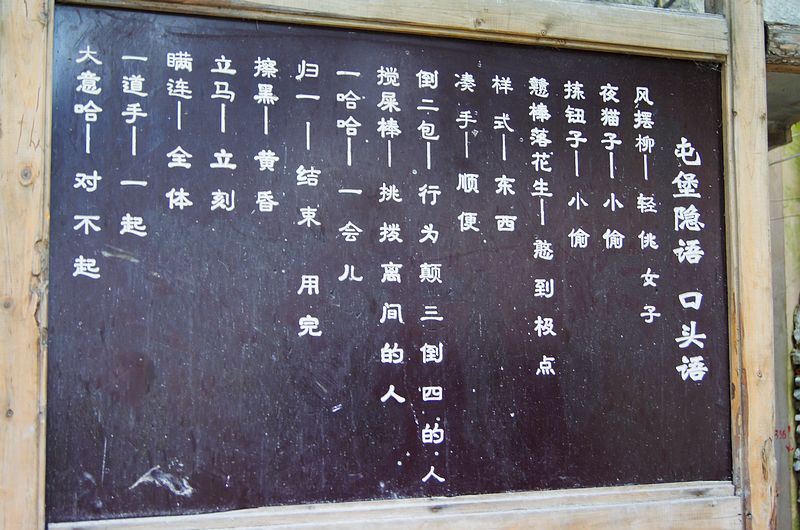 屯堡隐语 口头语
风摆柳—轻佻女子
夜猫子—小偷
拣钮子—小偷
戆棒落花生—憨到极点
样式—东西
凑手—顺便
倒二包—行为颠三倒四的人
搅屎棒—挑拨离间的人
一哈哈—一会儿
归一—结束 用完
擦黑—黄昏
立马—立刻
瞒连—全体
一道手—一起
大意哈—对不起